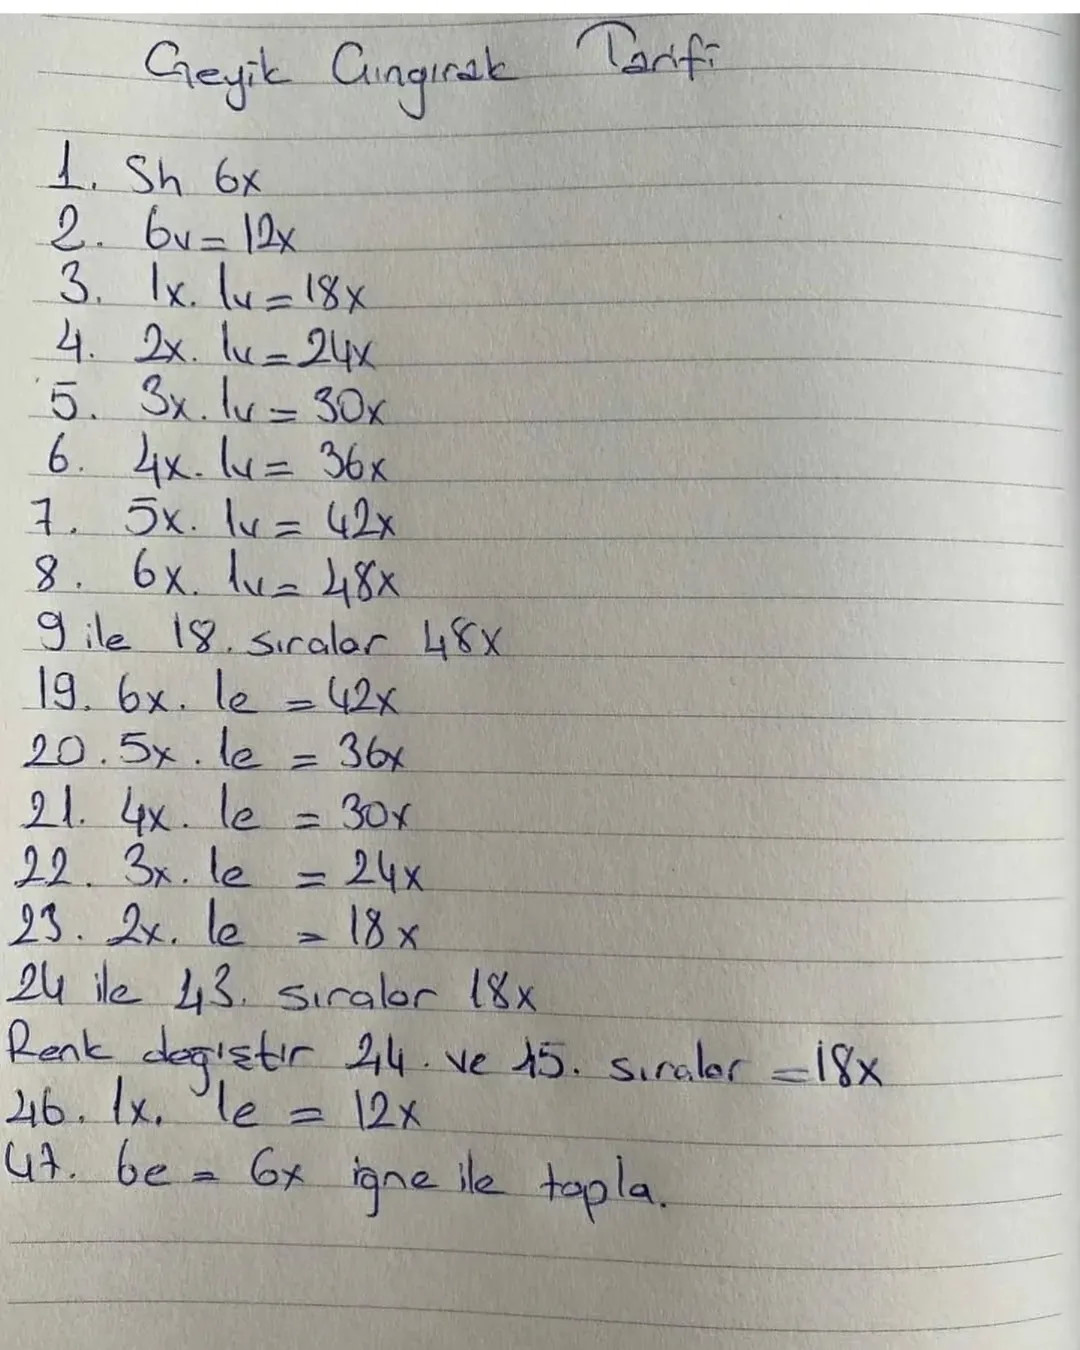 Geyik Çıngırak Tarifi
1. Sh 6x
2. 6v = 12x
3. 1x. 1v = 18x
4. 2x. 1v = 24x
5. 3x. 1v = 30x
6. 4x. 1v = 36x
7. 5x. 1v = 42x
8. 6x. 1v = 48x
9 ile 18. sıralar 48x
19. 6x. 1e = 42x
20. 5x. 1e = 36x
21. 4x. 1e = 30x
22. 3x. 1e = 24x
23. 2x. 1e = 18x
24 ile 43. sıralar 18x
Renk değıştır 44. ve 45. sıralar = 18x
46. 1x. 1e = 12x
47. 6e = 6x iğne ile topla.